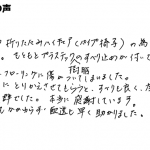 の声
折りたたみハイチェア(パイプ椅子)の為
もともとプラスチックのすべり止めが付いて
樹脂
フローリングに傷がついてしまいました。
にとりかえさせてもらうと、すべりも良く、た
静でした。本当に感謝しています。
かかわらず配送も早く助かりました。